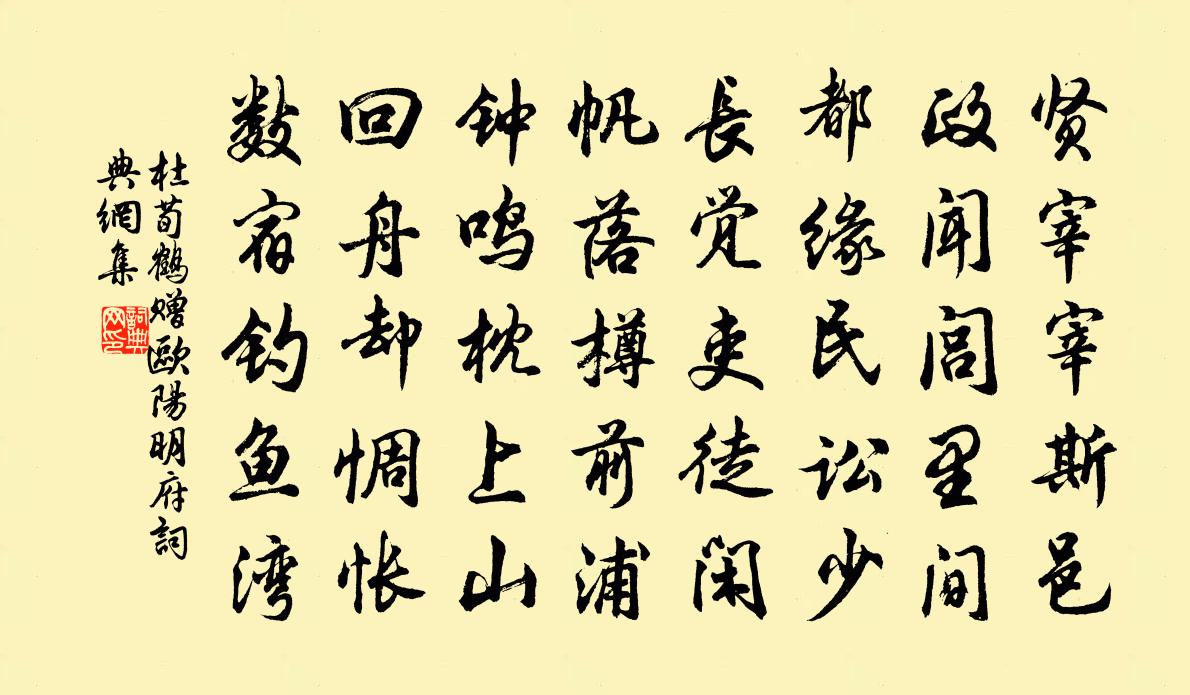 贤宰宰斯邑
政闻闾里间
都缘民讼少
長觉吏徒闲
帆落樽前浦
钟鸣枕上山
回舟却惆怅
数宿钓鱼湾
杜荀鶴赠歐陽明府詞
典網集
詞典
网印